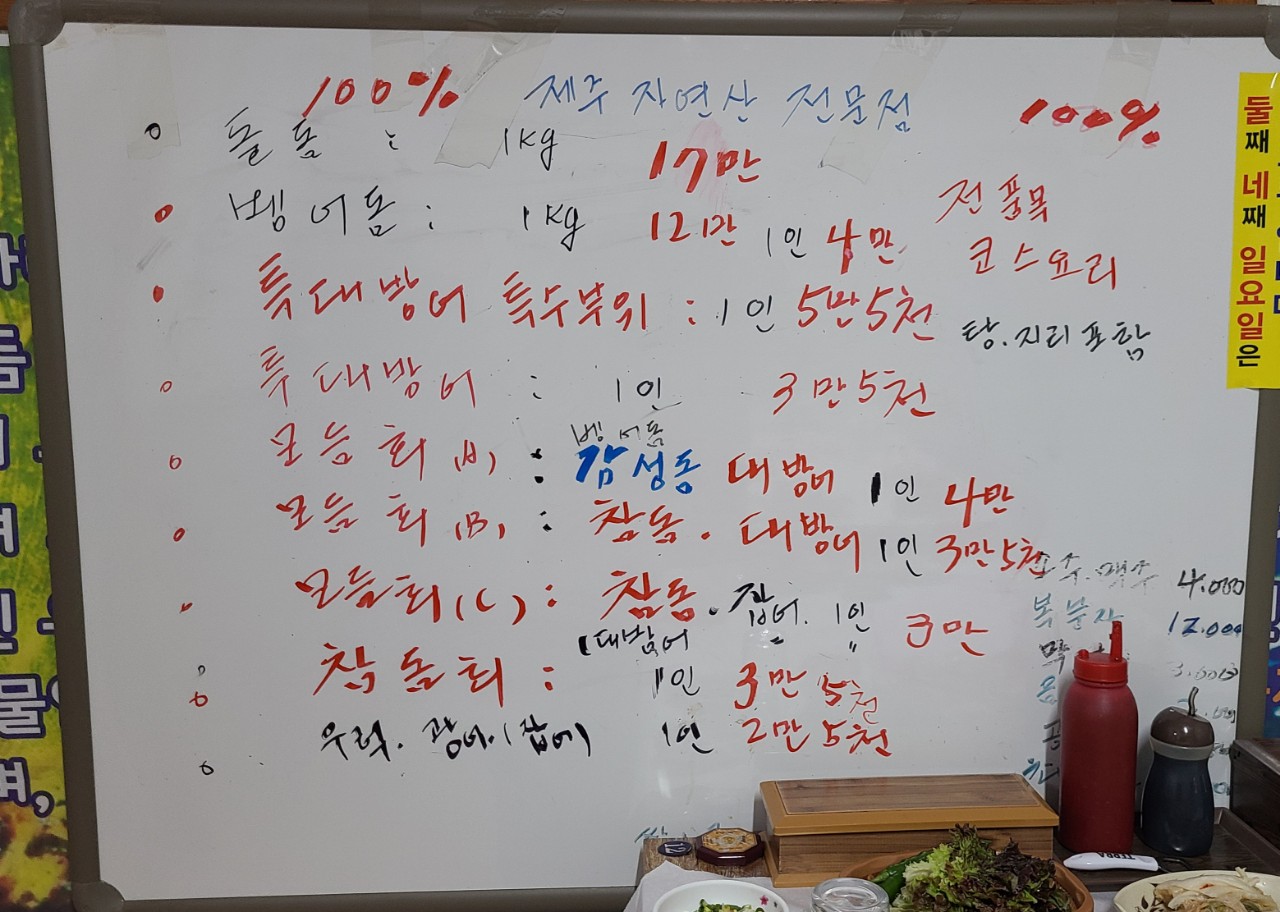 100% 제주 자연산 전문점 100%
돌돔 : 1kg 17만
벵어돔 : 1kg 12만 1인 4만
전품목
코스요리
특대방어 특수부위 : 1인 5만5천
탕.지리포함
특대방어 : 1인 3만5천
벵어돔
모듬회(A) : 감성돔 대방어 1인 4만
모듬회(B) : 참돔. 대방어 1인 3만5천
모듬회(C) : 참돔. 잡어. 1인 3만
(대방어
참돔회 : 1인 3만5천
우럭. 광어.(잡어) 1인 2만5천
소주.맥주 4.000
복분자 12.000
3.000
둘째 네째 일요일은
TERRA
12